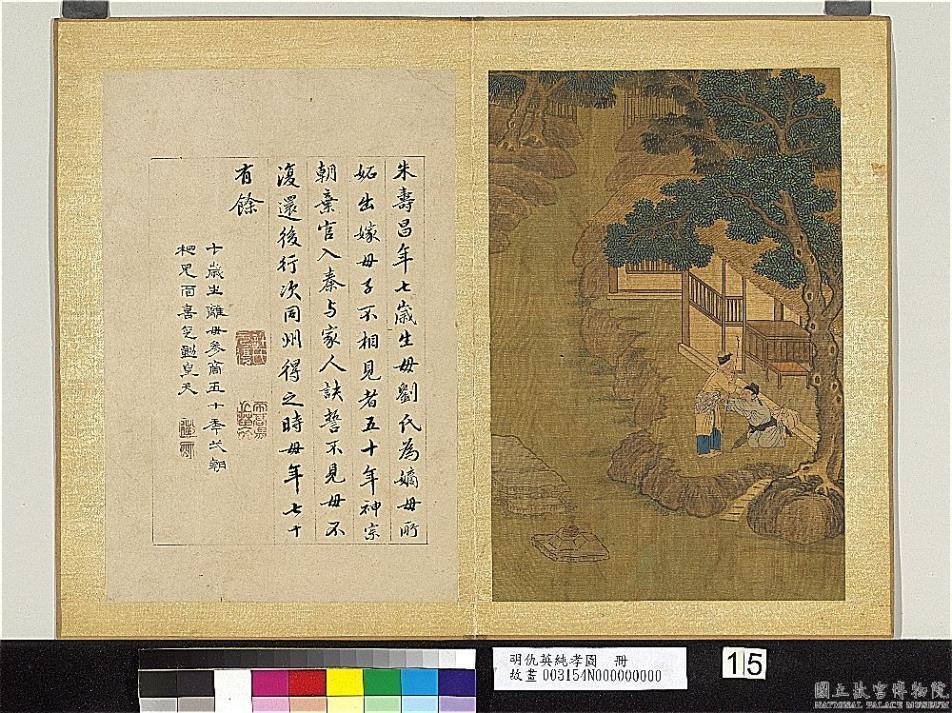 朱壽昌年七歲生母劉氏為嫡母所
妬出嫁母子不相見者五十年神宗
朝棄官入秦与家人訣誓不見母不
復還後行次同州得之時母年七十
有餘
七歲生離母參商五十年一朝
相見面喜氣動皇天
明仇英純孝圖 冊
故畫 003154N000000000
15
國立故宮博物院
NATIONAL PALACE MUSEUM